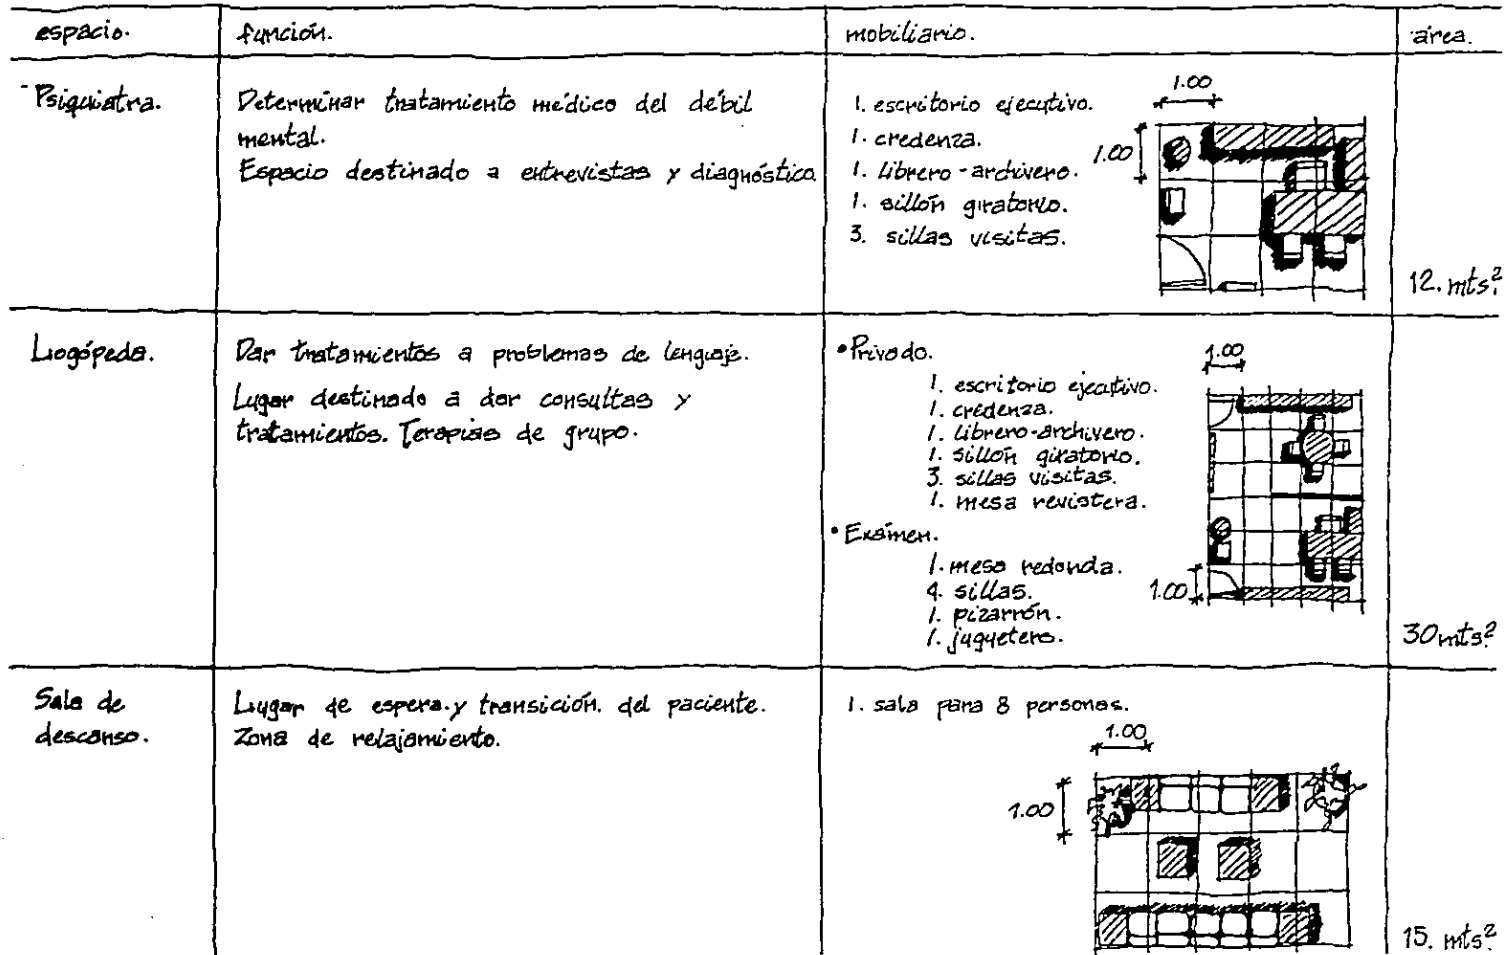 espacio. función. mobiliario. área.
Psiquiatra.
Determinar tratamiento médico del débil
mental.
Espacio destinado a entrevistas y diagnóstico
1. escritorio ejecutivo.
1. credenza.
1. librero-archivero.
1. sillón giratorio.
3. sillas visitas.
1.00
1.00
12. mts²
Logópeda.
Dar tratamientos a problemas de lenguaje.
Lugar destinado a dar consultas y
tratamientos. Terapias de grupo.
•Privado.
1. escritorio ejecutivo.
1. credenza.
1. librero-archivero.
1. sillón giratorio.
3. sillas visitas.
1. mesa revistera.
•Exámen.
1. mesa redonda.
4. sillas.
1. pizarrón.
1. juguetero.
1.00
1.00
30 mts²
Sala de
descanso.
Lugar de espera. y transición. del paciente.
Zona de relajamiento.
1. sala para 8 personas.
1.00
1.00
15. mts²